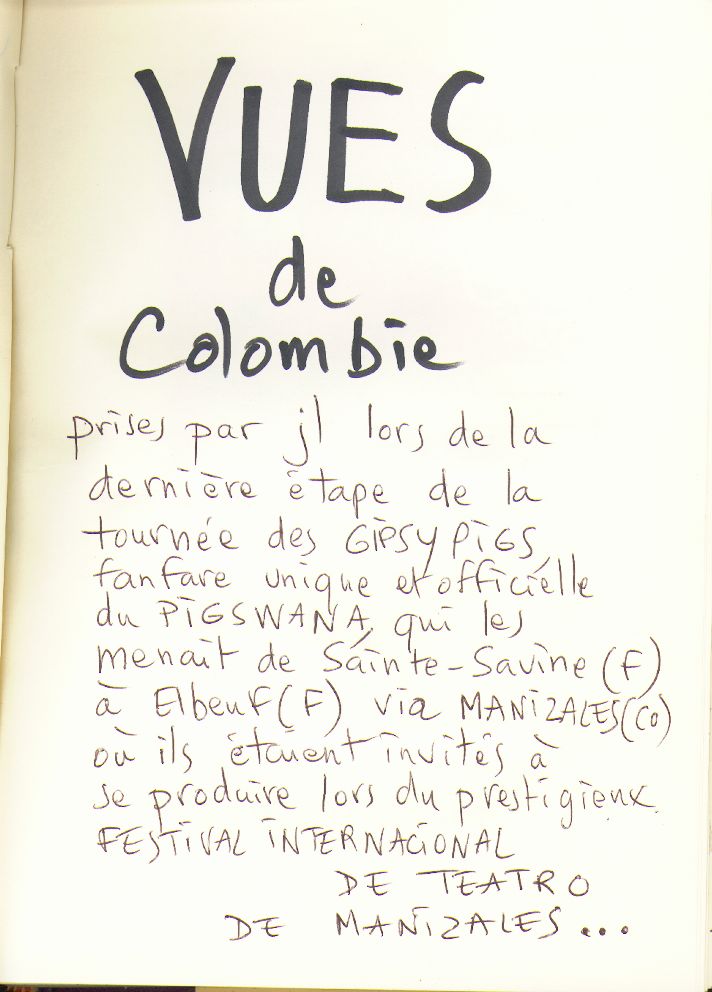 VUES
de
Colombie
prises par jl lors de la
dernière étape de la
tournée des GIPSY PIGS,
fanfare unique et officielle
du PIGSWANA, qui les
menait de Sainte-Savine (F)
à Elbeuf (F) via MANIZALES (CO)
où ils étaient invités à
se produire lors du prestigieux
FESTIVAL INTERNACIONAL
DE TEATRO
DE MANIZALES...